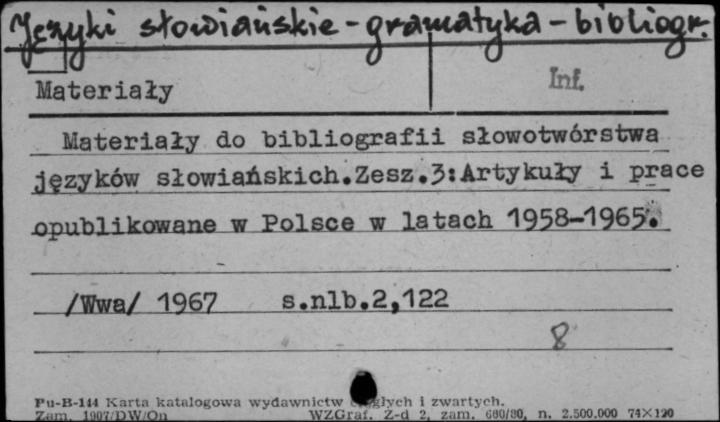 Języki słowiańskie - gramatyka - bibliogr.
Materiały
Inf.
Materiały do bibliografii słowotwórstwa
języków słowiańskich.Zesz.3:Artykuły i prace
opublikowane w Polsce w latach 1958-1965.
/Wwa/ 1967 s.nlb.2,122
8
Pu-B-144 Karta katalogowa wydawnictw i zwartych.
Zam. 1907/DW/On WZGraf. Z-d 2, zam. 680/80, n. 2.500.000 74×120